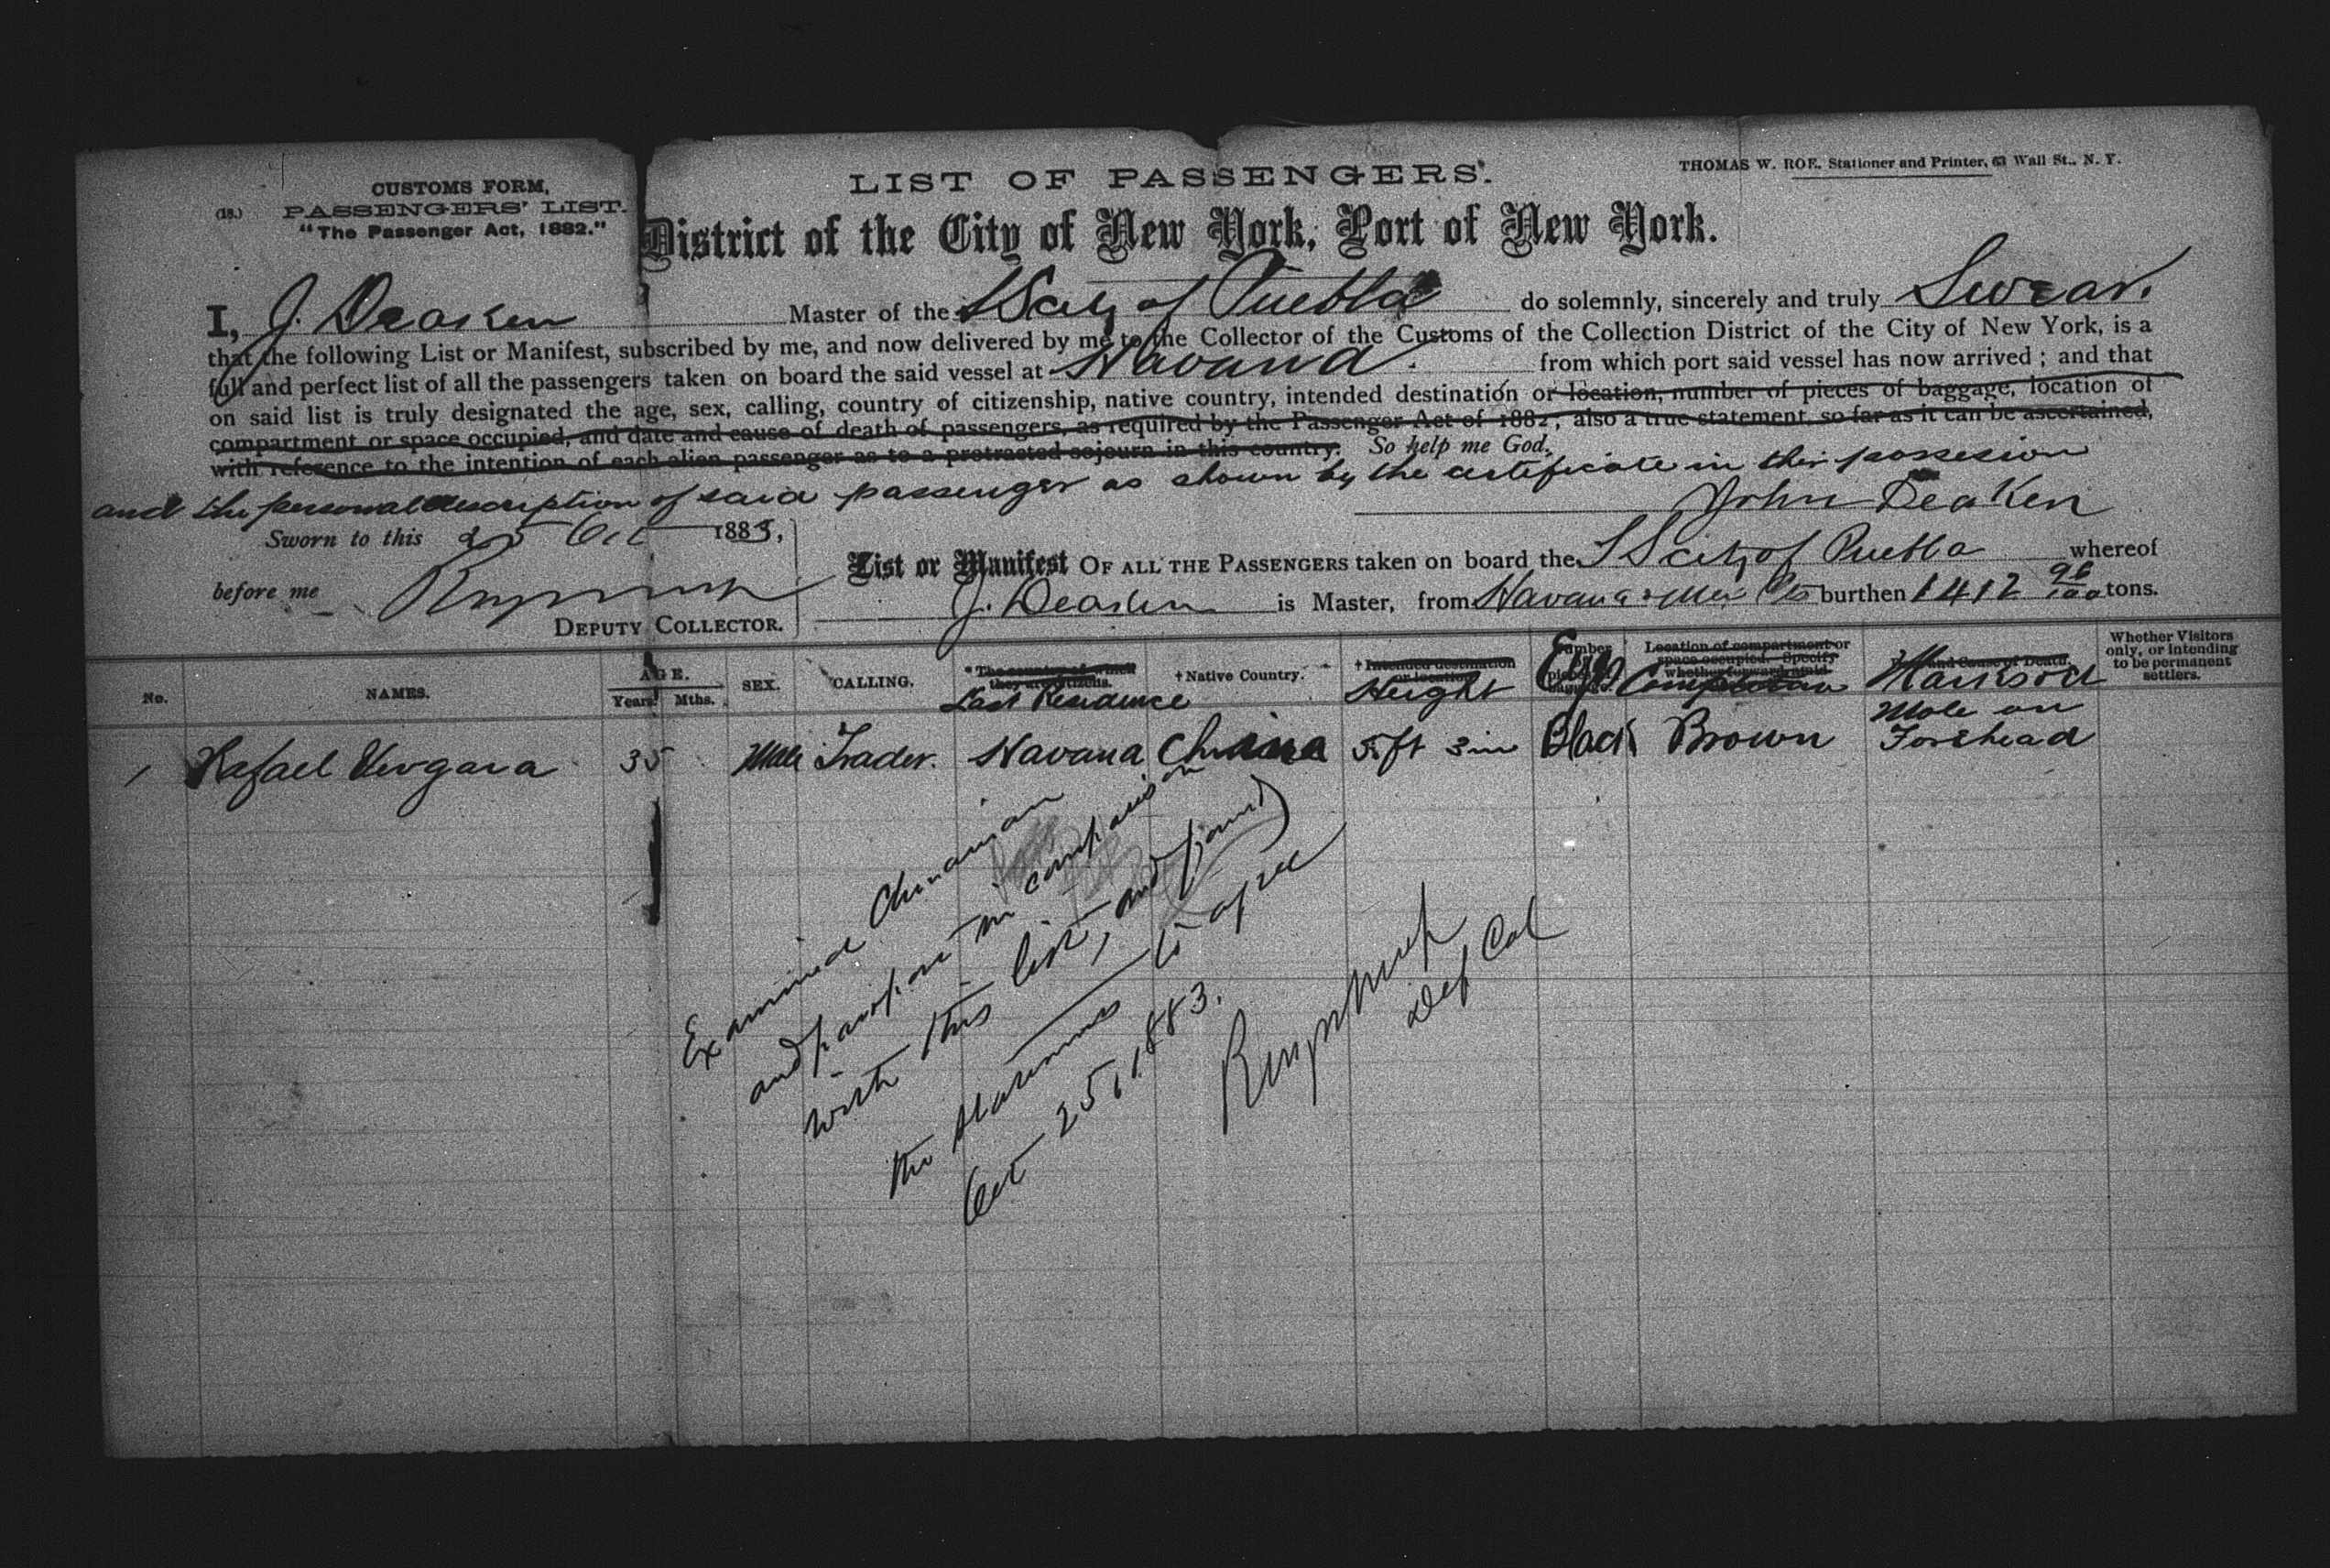 THOMAS W. ROE, Stationer and Printer, 63 Wall St., N. Y.
CUSTOMS FORM,
(18.) PASSENGERS' LIST.
"The Passenger Act, 1882."
LIST OF PASSENGERS.
District of the City of New York, Port of New York.
I, J. Deaken Master of the SS City of Puebla do solemnly, sincerely and truly Swear.
that the following List or Manifest, subscribed by me, and now delivered by me to the Collector of the Customs of the Collection District of the City of New York, is a
full and perfect list of all the passengers taken on board the said vessel at Havana. from which port said vessel has now arrived; and that
on said list is truly designated the age, sex, calling, country of citizenship, native country, intended destination or location, number of pieces of baggage, location of
compartment or space occupied, and date and cause of death of passengers, as required by the Passenger Act of 1882; also a true statement, so far as it can be ascertained,
with reference to the intention of each alien passenger as to a protracted sojourn in this country. So help me God.
and the personal description of said passenger as shown by the certificate in their possession
John Deaken
Sworn to this 25 Oct 1883,
before me
DEPUTY COLLECTOR.
List or Manifest OF ALL THE PASSENGERS taken on board the SS City of Puebla whereof
J. Deaken is Master, from Havana & Mex Pts burthen 1412 96/100 tons.
No. NAMES. AGE. Years. Mths. SEX. CALLING. * The country of which they are citizens. Last Residence † Native Country. † Intended destination or location. Height Eyes Location of compartment or space occupied. Specify Complexion and Cause of Death. Marks &c Whether Visitors only, or intending to be permanent settlers.
1 Rafael Vergara 35 Male Trader. Havana China 5 ft 3 in Black Brown Mole on Forehead
Examined Chinaman
and passport in comparison
with this list, and found
the statements to agree
Oct 25, 1883.
Dep Col